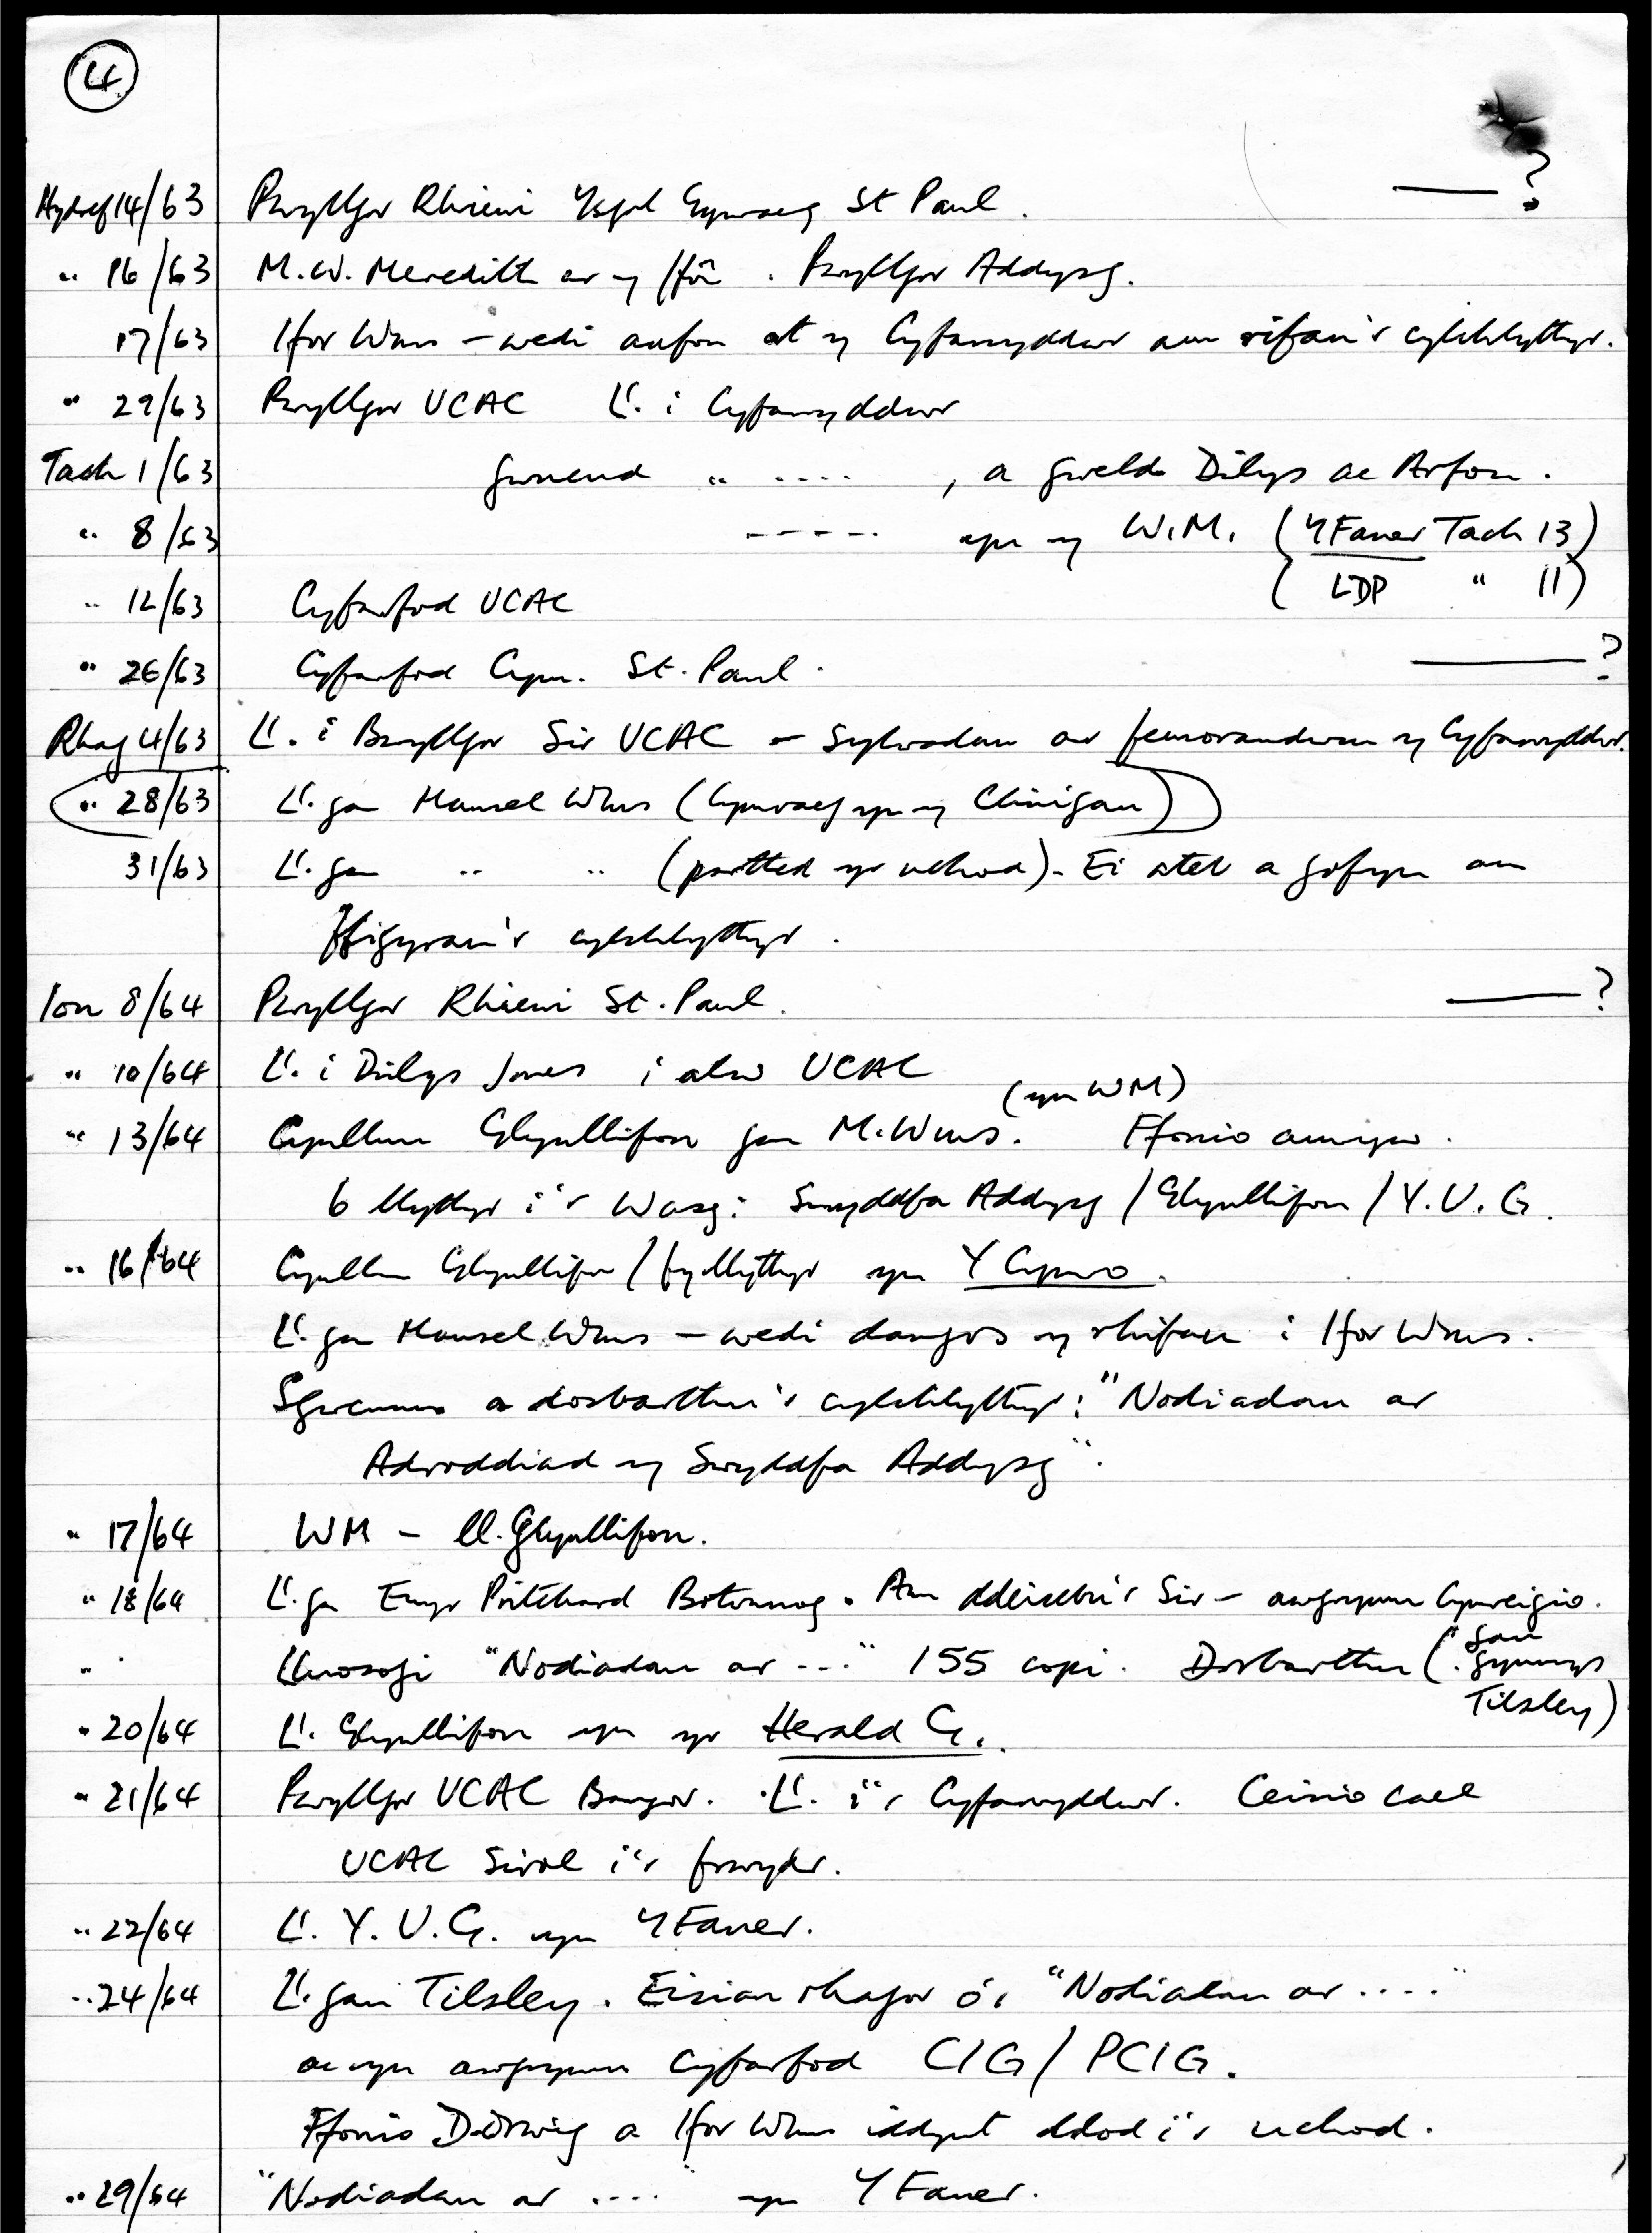 4
Hydref 14/63 Pwyllgor Rhieni Ysgol Gymraeg St Paul. — ?
" 16/63 M.W. Meredith ar y ffôn. Pwyllgor Addysg.
17/63 Ifor Wms – wedi anfon at y Cyfarwyddwr am rifau'r cylchlythyr.
" 29/63 Pwyllgor UCAC Ll. i Cyfarwyddwr
Tach 1/63 gwneud " ...., a gweld Dilys ac Arfon.
" 8/63 ----- yn y W.M. (Y Faner Tach 13)
( LDP " 11)
" 12/63 Cyfarfod UCAC
" 26/63 Cyfarfod Cym. St. Paul. — ?
Rhag 4/63 Ll. i Bwyllgor Sir UCAC – Sylwadau ar femorandwm y Cyfarwyddwr.
" 28/63 Ll. gan Mansel Wms (Cymraeg yn y Clinigau)
31/63 Ll. gan " " (parthed yr uchod). Ei ateb a gofyn am
ffigyrau'r cylchlythyr.
Ion 8/64 Pwyllgor Rhieni St. Paul. — ?
" 10/64 Ll. i Dilys Jones i alw UCAC
(yn WM)
" 13/64 Cynllun Glynllifon gan M. Wms. Ffonio amryw.
6 llythyr i'r Wasg: Swyddfa Addysg / Glynllifon / Y.U.G.
" 16/64 Cynllun Glynllifon / fy llythyr yn Y Cymro.
Ll. gan Mansel Wms – wedi dangos y rhifau i Ifor Wms.
Sgrifennu a dosbarthu'r cylchlythyr: "Nodiadau ar
Adroddiad y Swyddfa Addysg".
" 17/64 WM – ll. Glynllifon.
" 18/64 Ll. gan Emyr Pritchard Botwnnog. Am ddeisebu'r Sir – awgrymu Cymreigio.
" Lluosogi "Nodiadau ar ---" 155 copi. Dosbarthu (. gan
gynnwys
Tilsley)
" 20/64 Ll. Glynllifon yn yr Herald G..
" 21/64 Pwyllgor UCAC Bangor. Ll. i'r Cyfarwyddwr. Ceisio cael
UCAC Sirol i'r frwydr.
" 22/64 Ll. Y.U.G. yn Y Faner.
" 24/64 Ll. gan Tilsley. Eisiau rhagor o'r "Nodiadau ar ...."
ac yn awgrymu cyfarfod CIG / PCIG.
Ffonio a Ifor Wms iddynt ddod i'r uchod.
" 29/64 "Nodiadau ar ...." yn Y Faner.